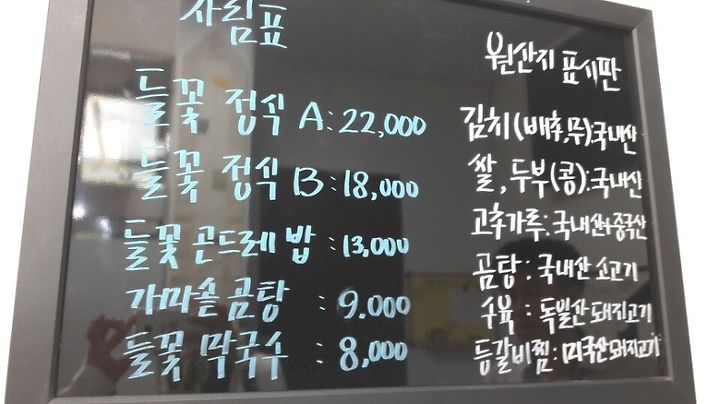 차림표
들꽃 정식 A : 22,000
들꽃 정식 B : 18,000
들꽃 곤드레 밥 : 13,000
가마솥 곰탕 : 9.000
들꽃 막국수 : 8,000
원산지 표시판
김치(배추,무):국내산
쌀, 두부(콩):국내산
고추가루:국내산+중국산
곰탕 : 국내산 소고기
수육 : 독일산 돼지고기
등갈비찜: 미국산돼지고기